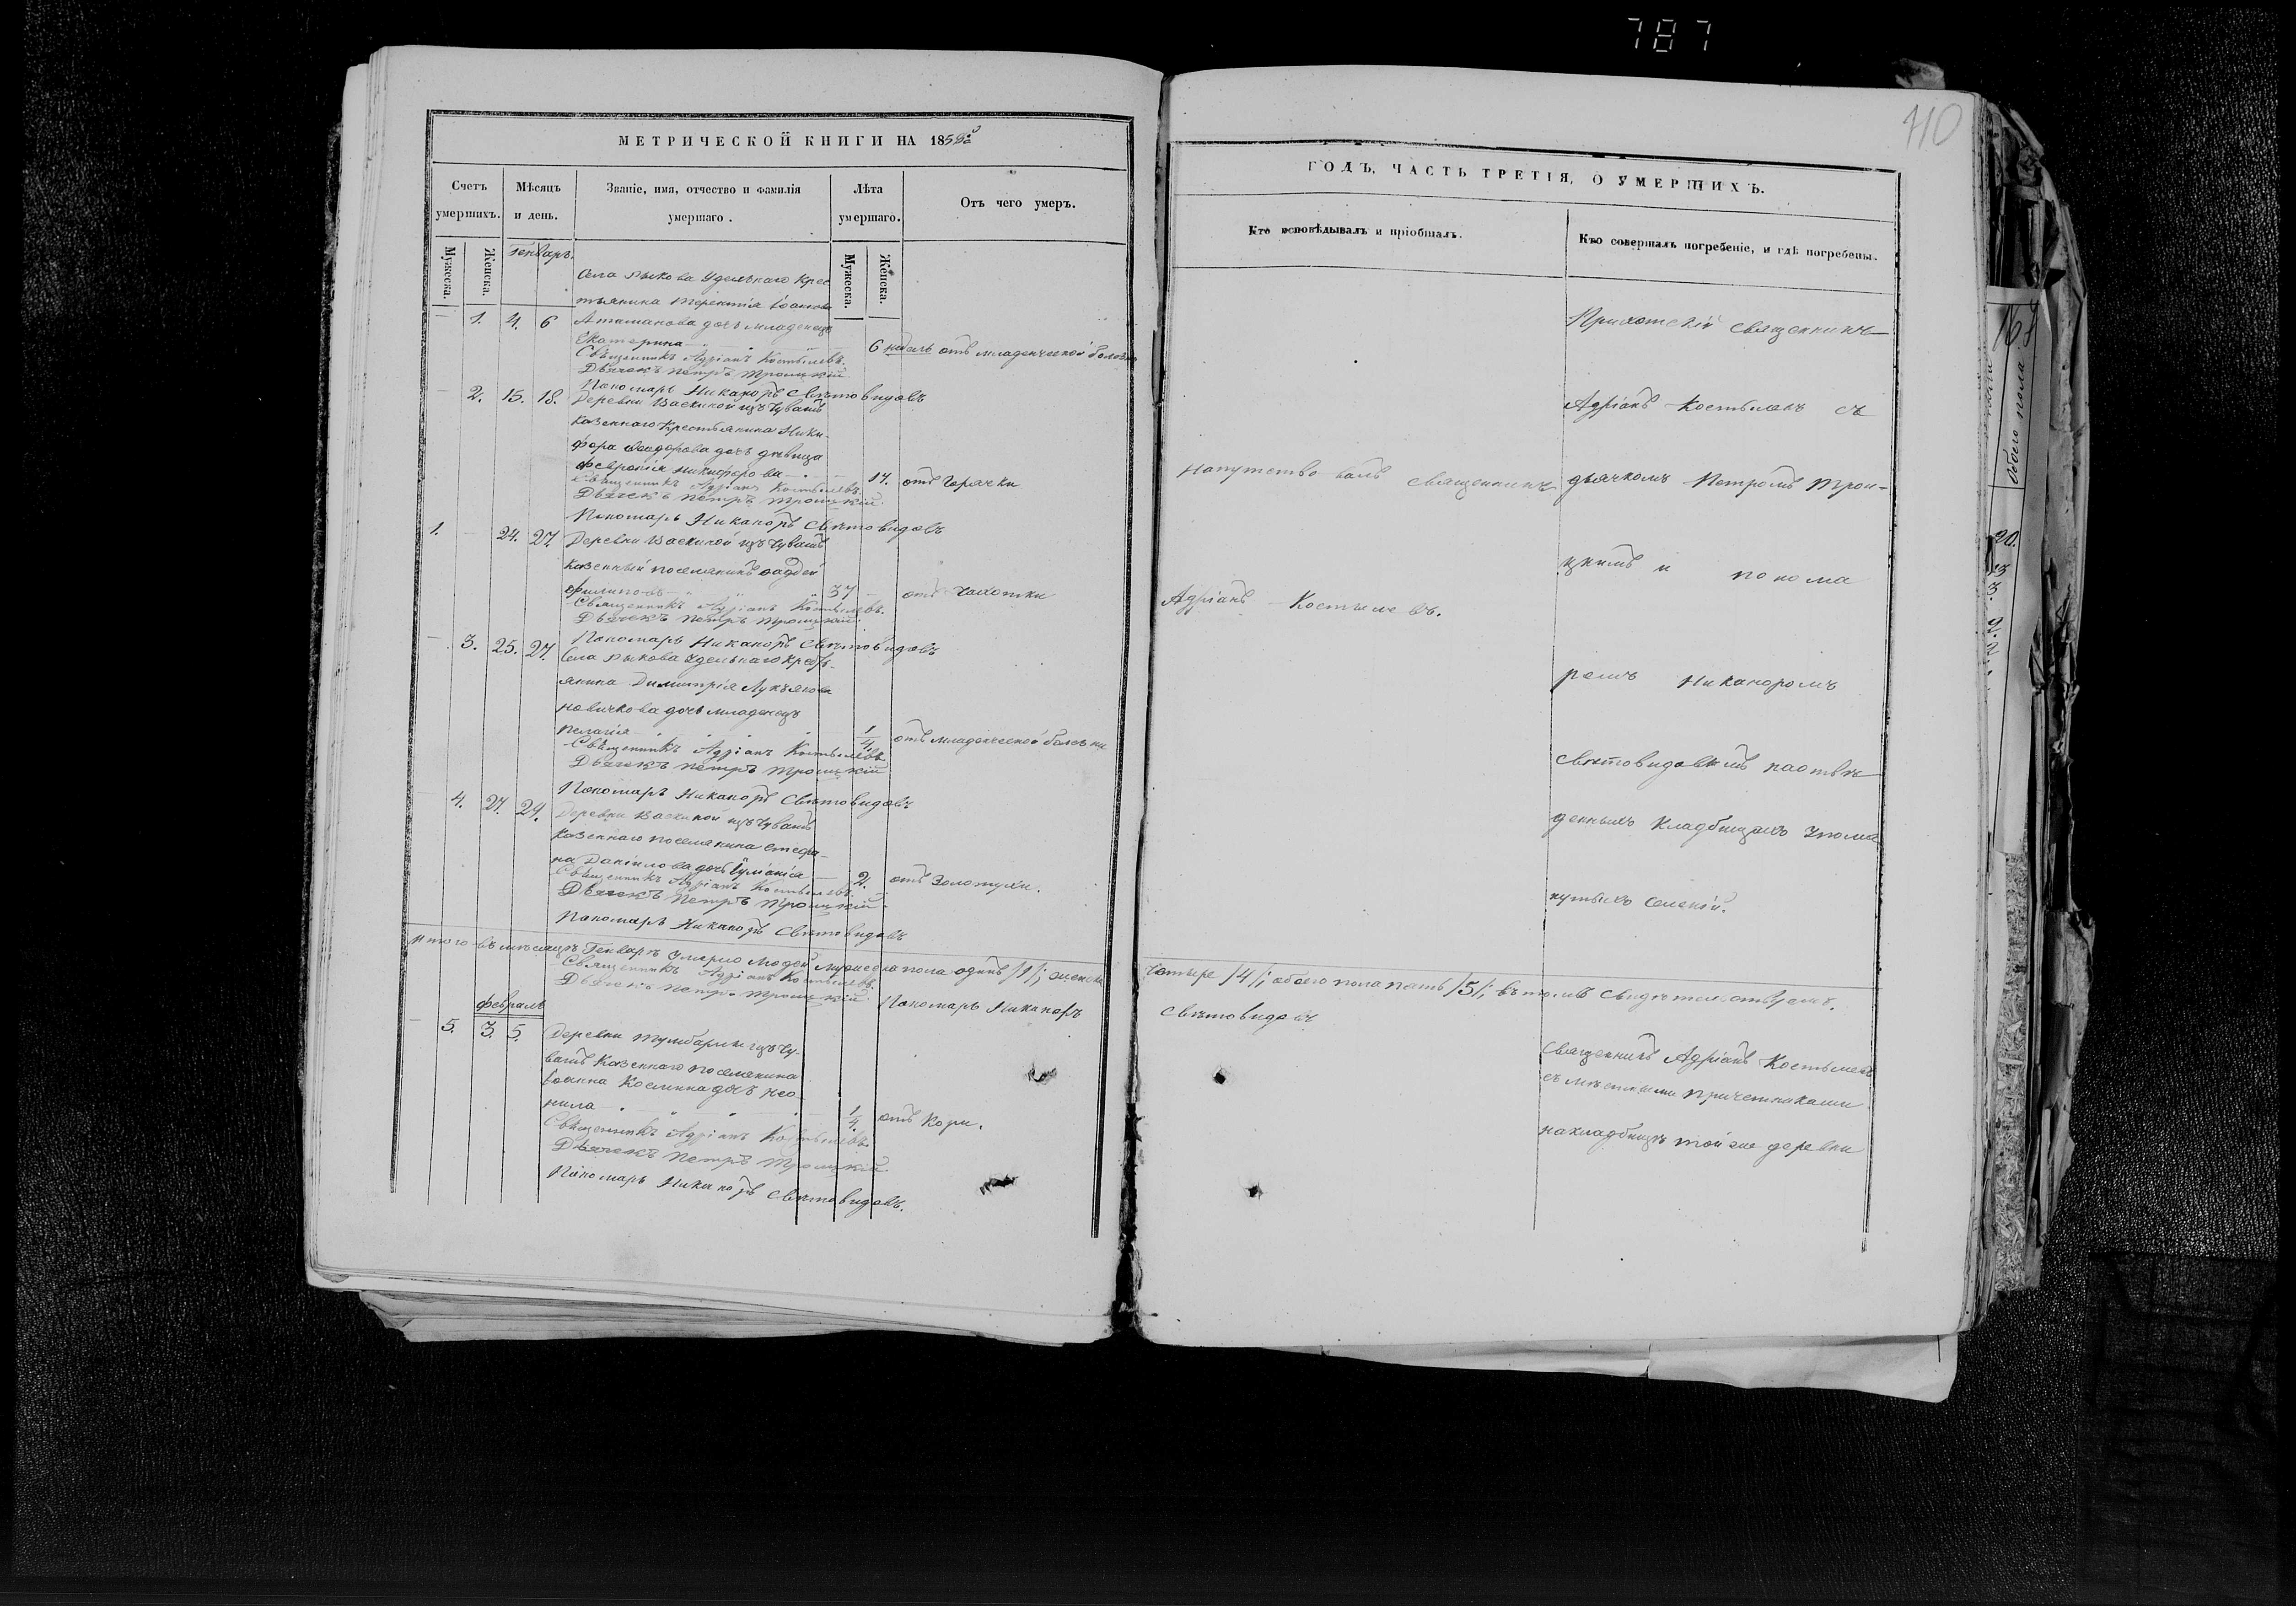 787
110
МЕТРИЧЕСКОЙ КНИГИ НА 185
Счетъ умершихъ.
Мѣсяцъ и день.
Званіе, имя, отчество и фамилія умершаго.
Лѣта умершаго.
Отъ чего умеръ.
Мужеска.
Женска.
Генварь.
Мужеска.
Женска.
Села Рыкова Удельнаго Крес
тьянина Терентія Іоаннова
1. 4. 6 Атаманова дочь младенецъ
Екатерина 6 недель отъ младенческой болезни
Священникъ Адріанъ Костылевъ.
Дьячекъ Петръ Троицкій
Пономарь Никаноръ Свѣтовидовъ
2. 15. 18. Деревни Васкиной изъ Чувашъ
Казеннаго Крестьянина Ники
фора Феодорова дочь девица
Феврония Никифорова 17. отъ Горячки
Священникъ Адріанъ Костылевъ.
Дьячекъ Петръ Троицкій.
Пономарь Никаноръ Свѣтовидовъ
1. 24. 27. Деревни Васкиной изъ Чувашъ
Казенный поселянинъ Фаддей
Филиповъ 37 отъ Чахотки
Священникъ Адріанъ Костылевъ.
Дьячекъ Петръ Троицкій.
Пономарь Никаноръ Свѣтовидовъ
3. 25. 27. Села Рыкова Удельнаго Кресть
янина Димитрія Лукьянова
Новичкова дочь младенецъ
Пелагія 1/4. отъ младенческой болезни
Священникъ Адріанъ Костылевъ
Дьячекъ Петръ Троицкій
Пономарь Никаноръ Свѣтовидовъ
4. 27. 29. Деревни Васкиной изъ Чувашъ
Казеннаго поселянина Стефа
на Данилова дочь 2. отъ Золотухи.
Священникъ Адріанъ Костылевъ.
Дьячекъ Петръ Троицкій.
Пономарь Никаноръ Свѣтовидовъ
Итого въ месяцѣ Генварѣ Умерло Людей мужеска пола одинъ /1/; женска
Священникъ Адріанъ Костылевъ.
Дьячекъ Петръ Троицкій. Пономарь Никаноръ
Февраль
5. 3. 5. Деревни Тумбарлы изъ Чу
вашъ Казеннаго поселянина
Іоанна Космина дочь Нео
нила 1/4. отъ Кори.
Священникъ Адріанъ Костылевъ.
Дьячекъ Петръ Троицкій
Пономарь Никаноръ Свѣтовидовъ.
ГОДЪ, ЧАСТЬ ТРЕТІЯ, О УМЕРШИХЪ.
Кто исповѣдывалъ и пріобщалъ.
Кто совершалъ погребеніе, и гдѣ погребены.
Приходскій священникъ
Адріанъ Костылевъ съ
Напутствовалъ священникъ дьячкомъ Петромъ Трои-
цкимъ и понома
Адріанъ Костылевъ.
ремъ Никаноромъ
Свѣтовидовымъ на отве
денныхъ Кладбищахъ Упомя
нутыхъ Селеній.
Четыре /4/; обоего пола пять /5/; въ томъ свидѣтельствуемъ.
Свѣтовидовъ
Священникъ Адріанъ Костылевъ
съ местными причетниками
на кладбищѣ той же деревни
167
Обоего пола
20.